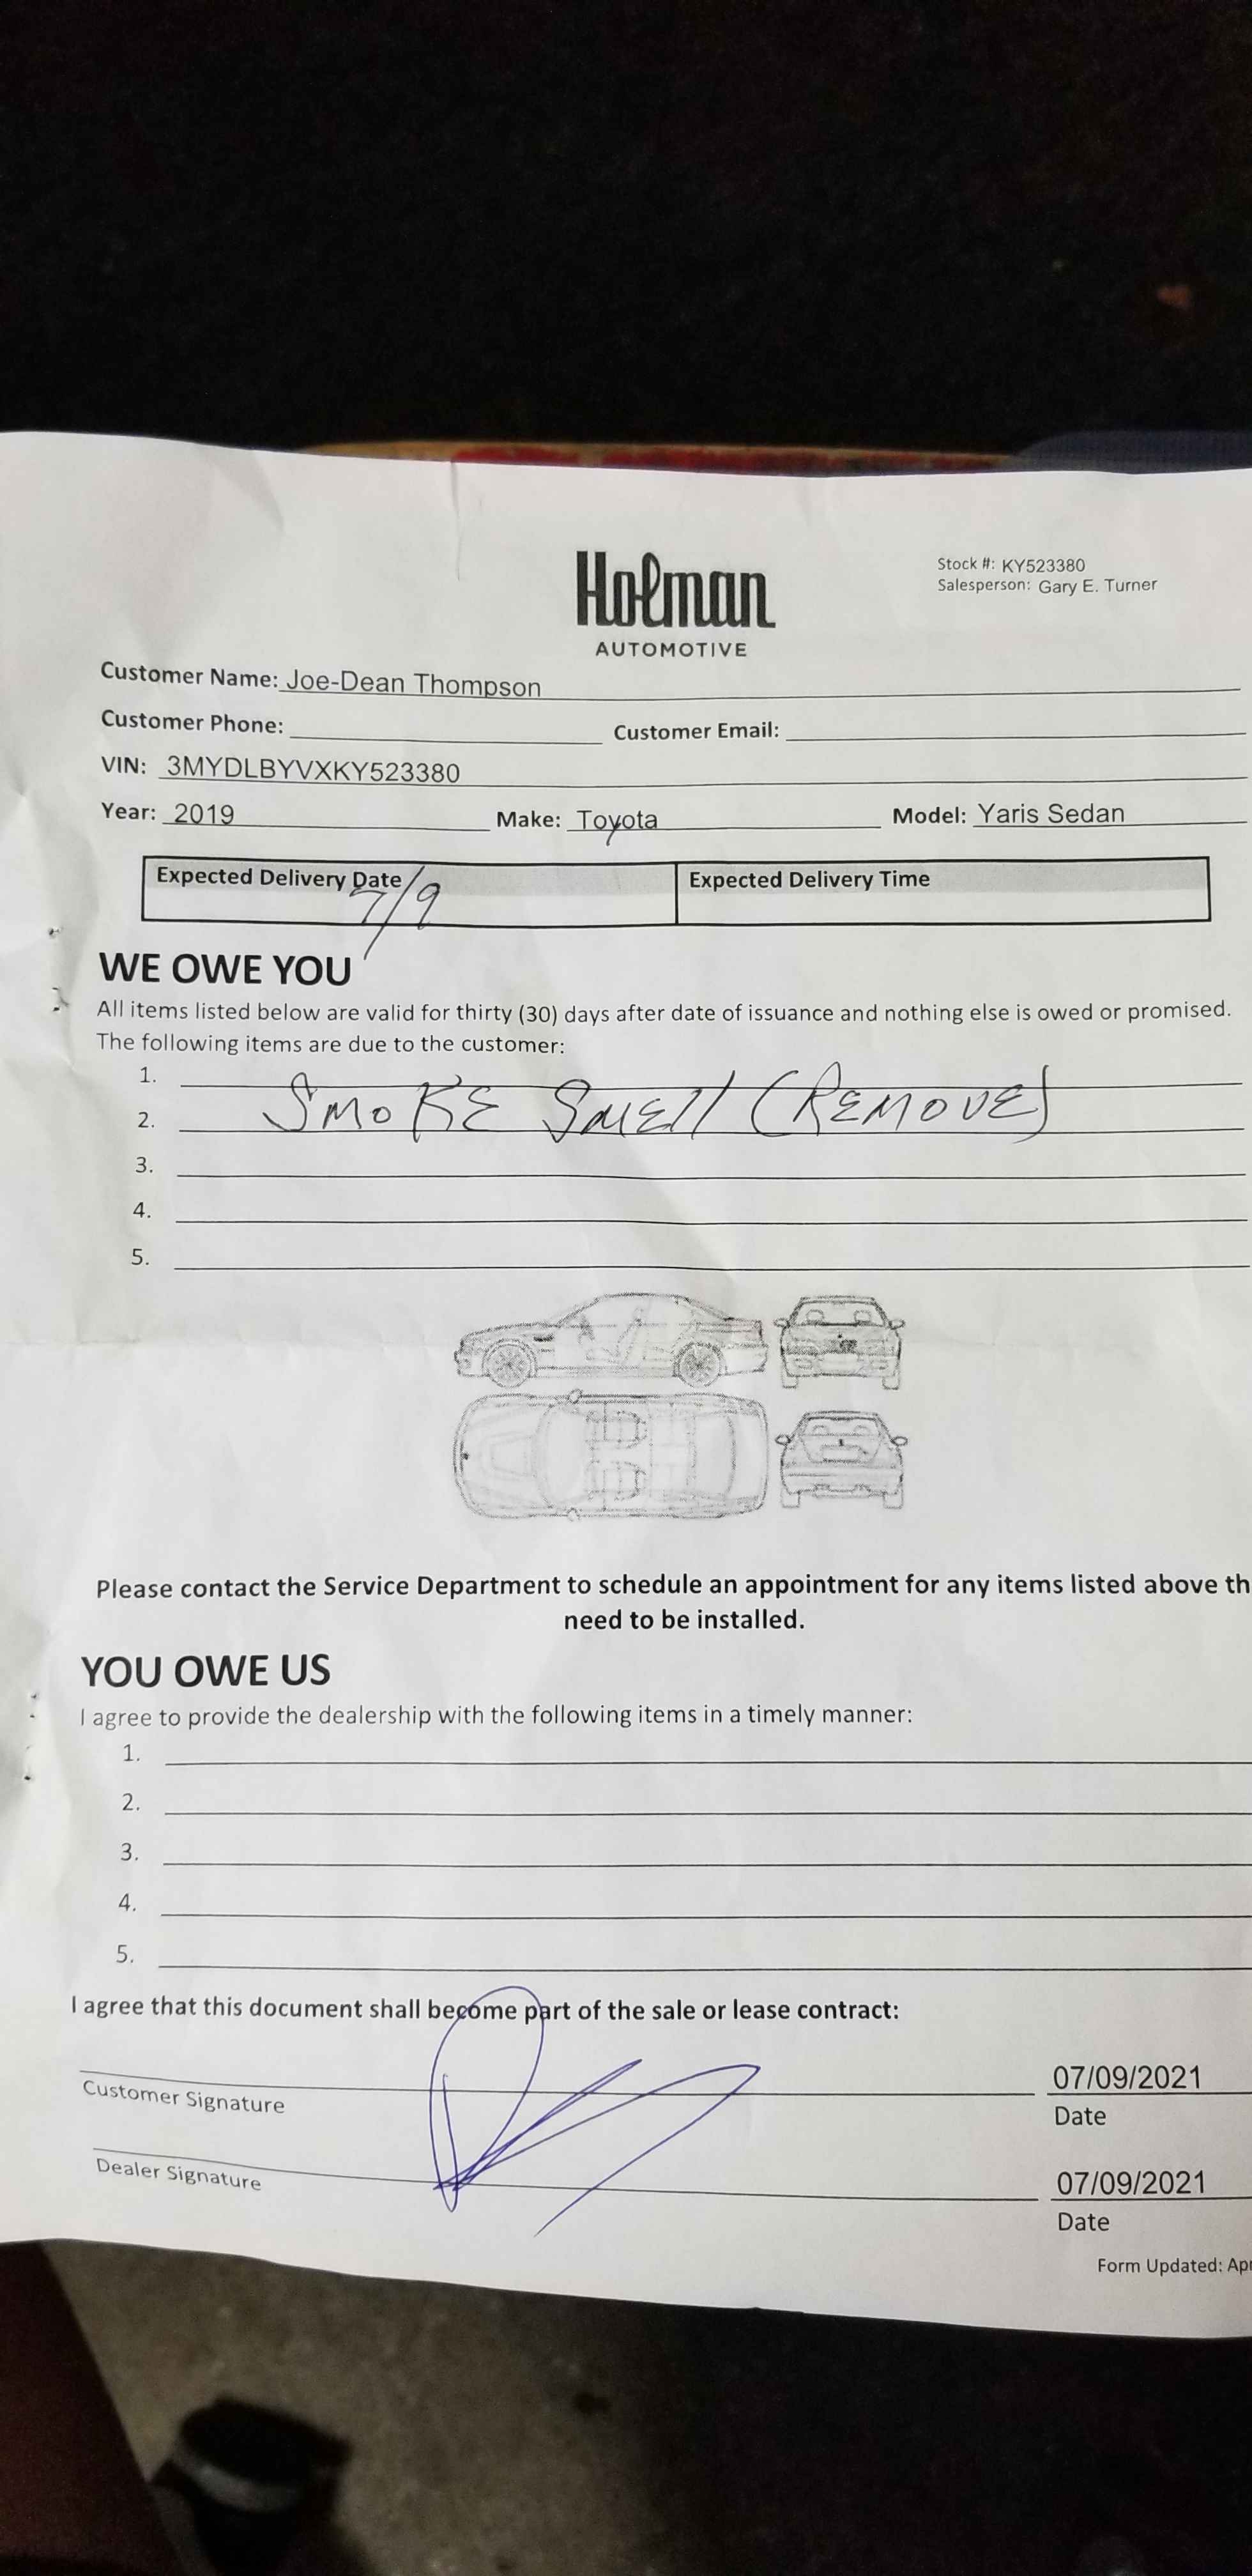 Holman
AUTOMOTIVE
Stock #: KY523380
Salesperson: Gary E. Turner
Customer Name: Joe-Dean Thompson
Customer Phone: Customer Email:
VIN: 3MYDLBYVXKY523380
Year: 2019 Make: Toyota Model: Yaris Sedan
Expected Delivery Date 7/9 Expected Delivery Time
WE OWE YOU
All items listed below are valid for thirty (30) days after date of issuance and nothing else is owed or promised.
The following items are due to the customer:
1.
2. SMOKE SMEll (REMOVE)
3.
4.
5.
Please contact the Service Department to schedule an appointment for any items listed above th
need to be installed.
YOU OWE US
I agree to provide the dealership with the following items in a timely manner:
1.
2.
3.
4.
5.
I agree that this document shall become part of the sale or lease contract:
07/09/2021
Customer Signature Date
07/09/2021
Dealer Signature Date
Form Updated: Apr